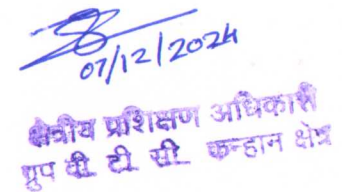 07/12/2024
क्षेत्रीय प्रशिक्षण अधिकारी
ग्रुप वी टी सी कन्हान क्षेत्र